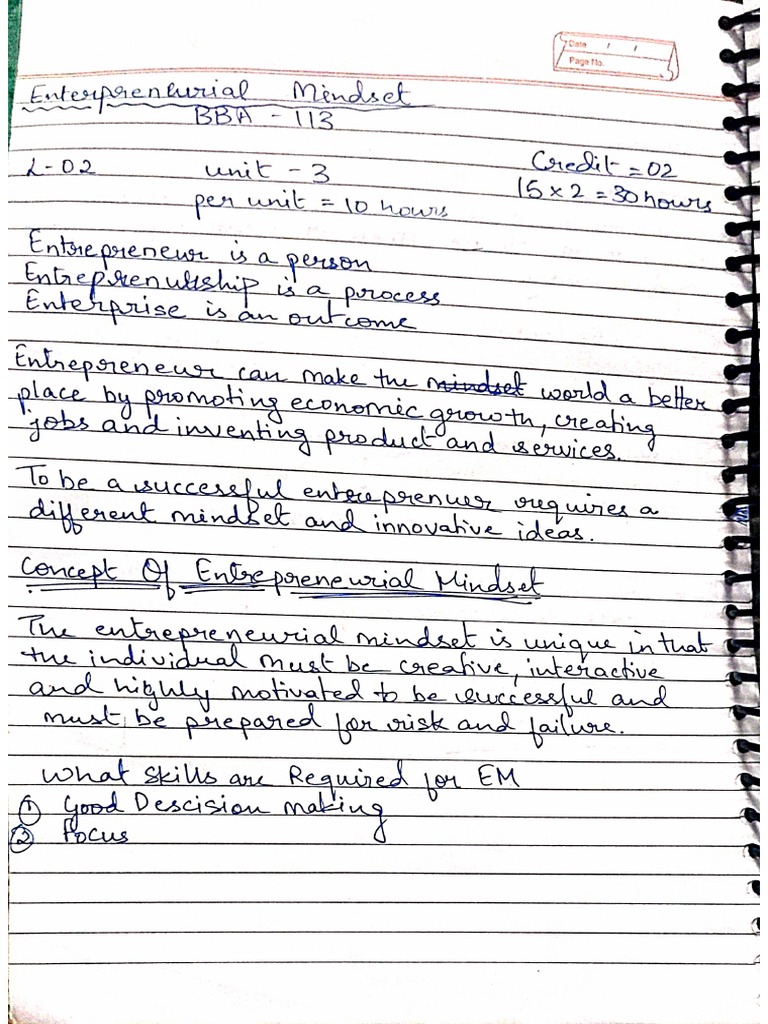 Date / /
Page No.
Enterpreneurial Mindset
BBA - 113
L-02 unit - 3 Credit = 02
per unit = 10 hours 15 x 2 = 30 hours
Entrepreneur is a person
Entreprenurship is a process
Enterprise is an outcome
Entrepreneur can make the mindset world a better
place by promoting economic growth, creating
jobs and inventing product and services.
To be a successful entreprenuer requires a
different mindset and innovative ideas.
Concept Of Entrepreneurial Mindset
The entrepreneurial mindset is unique in that
the individual must be creative, interactive
and highly motivated to be successful and
must be prepared for risk and failure.
What Skills are Required for EM
① Good Descision making
② Focus